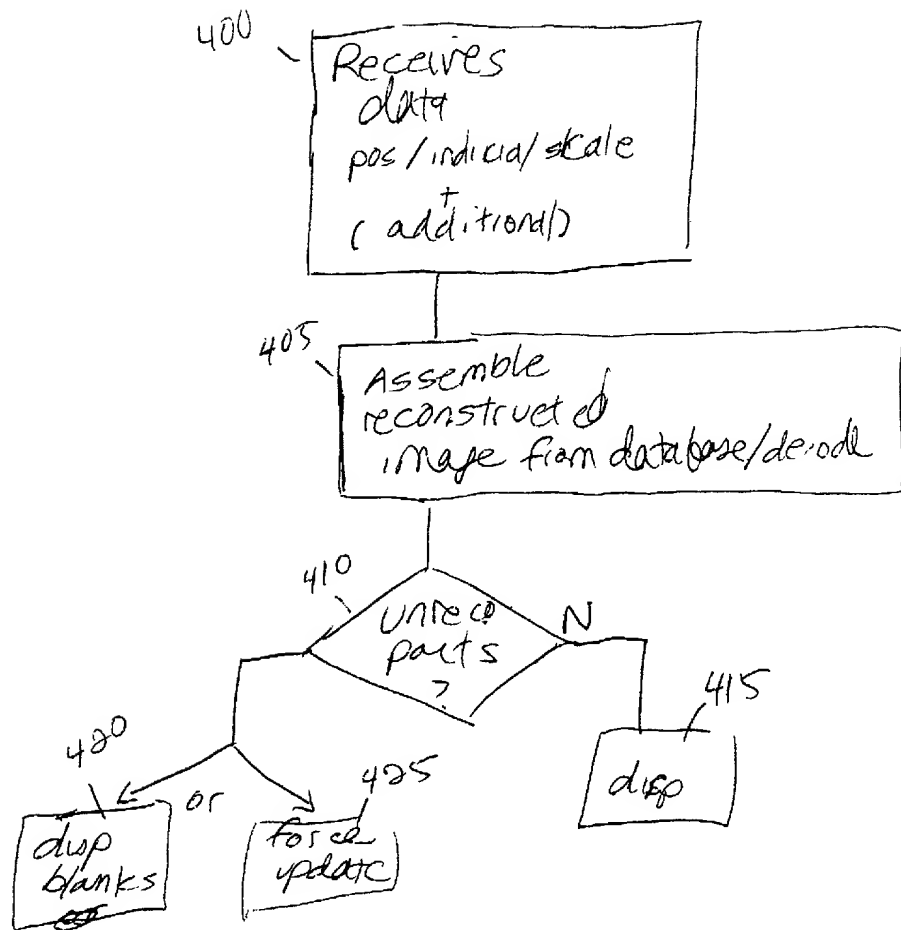 400
Receives
data
pos/indicia/scale
+
(additional)
405
Assemble
reconstructed
image from database/decode
410
unrec.
parts
?
N
415
disp
420
disp
blanks
or
425
force
update